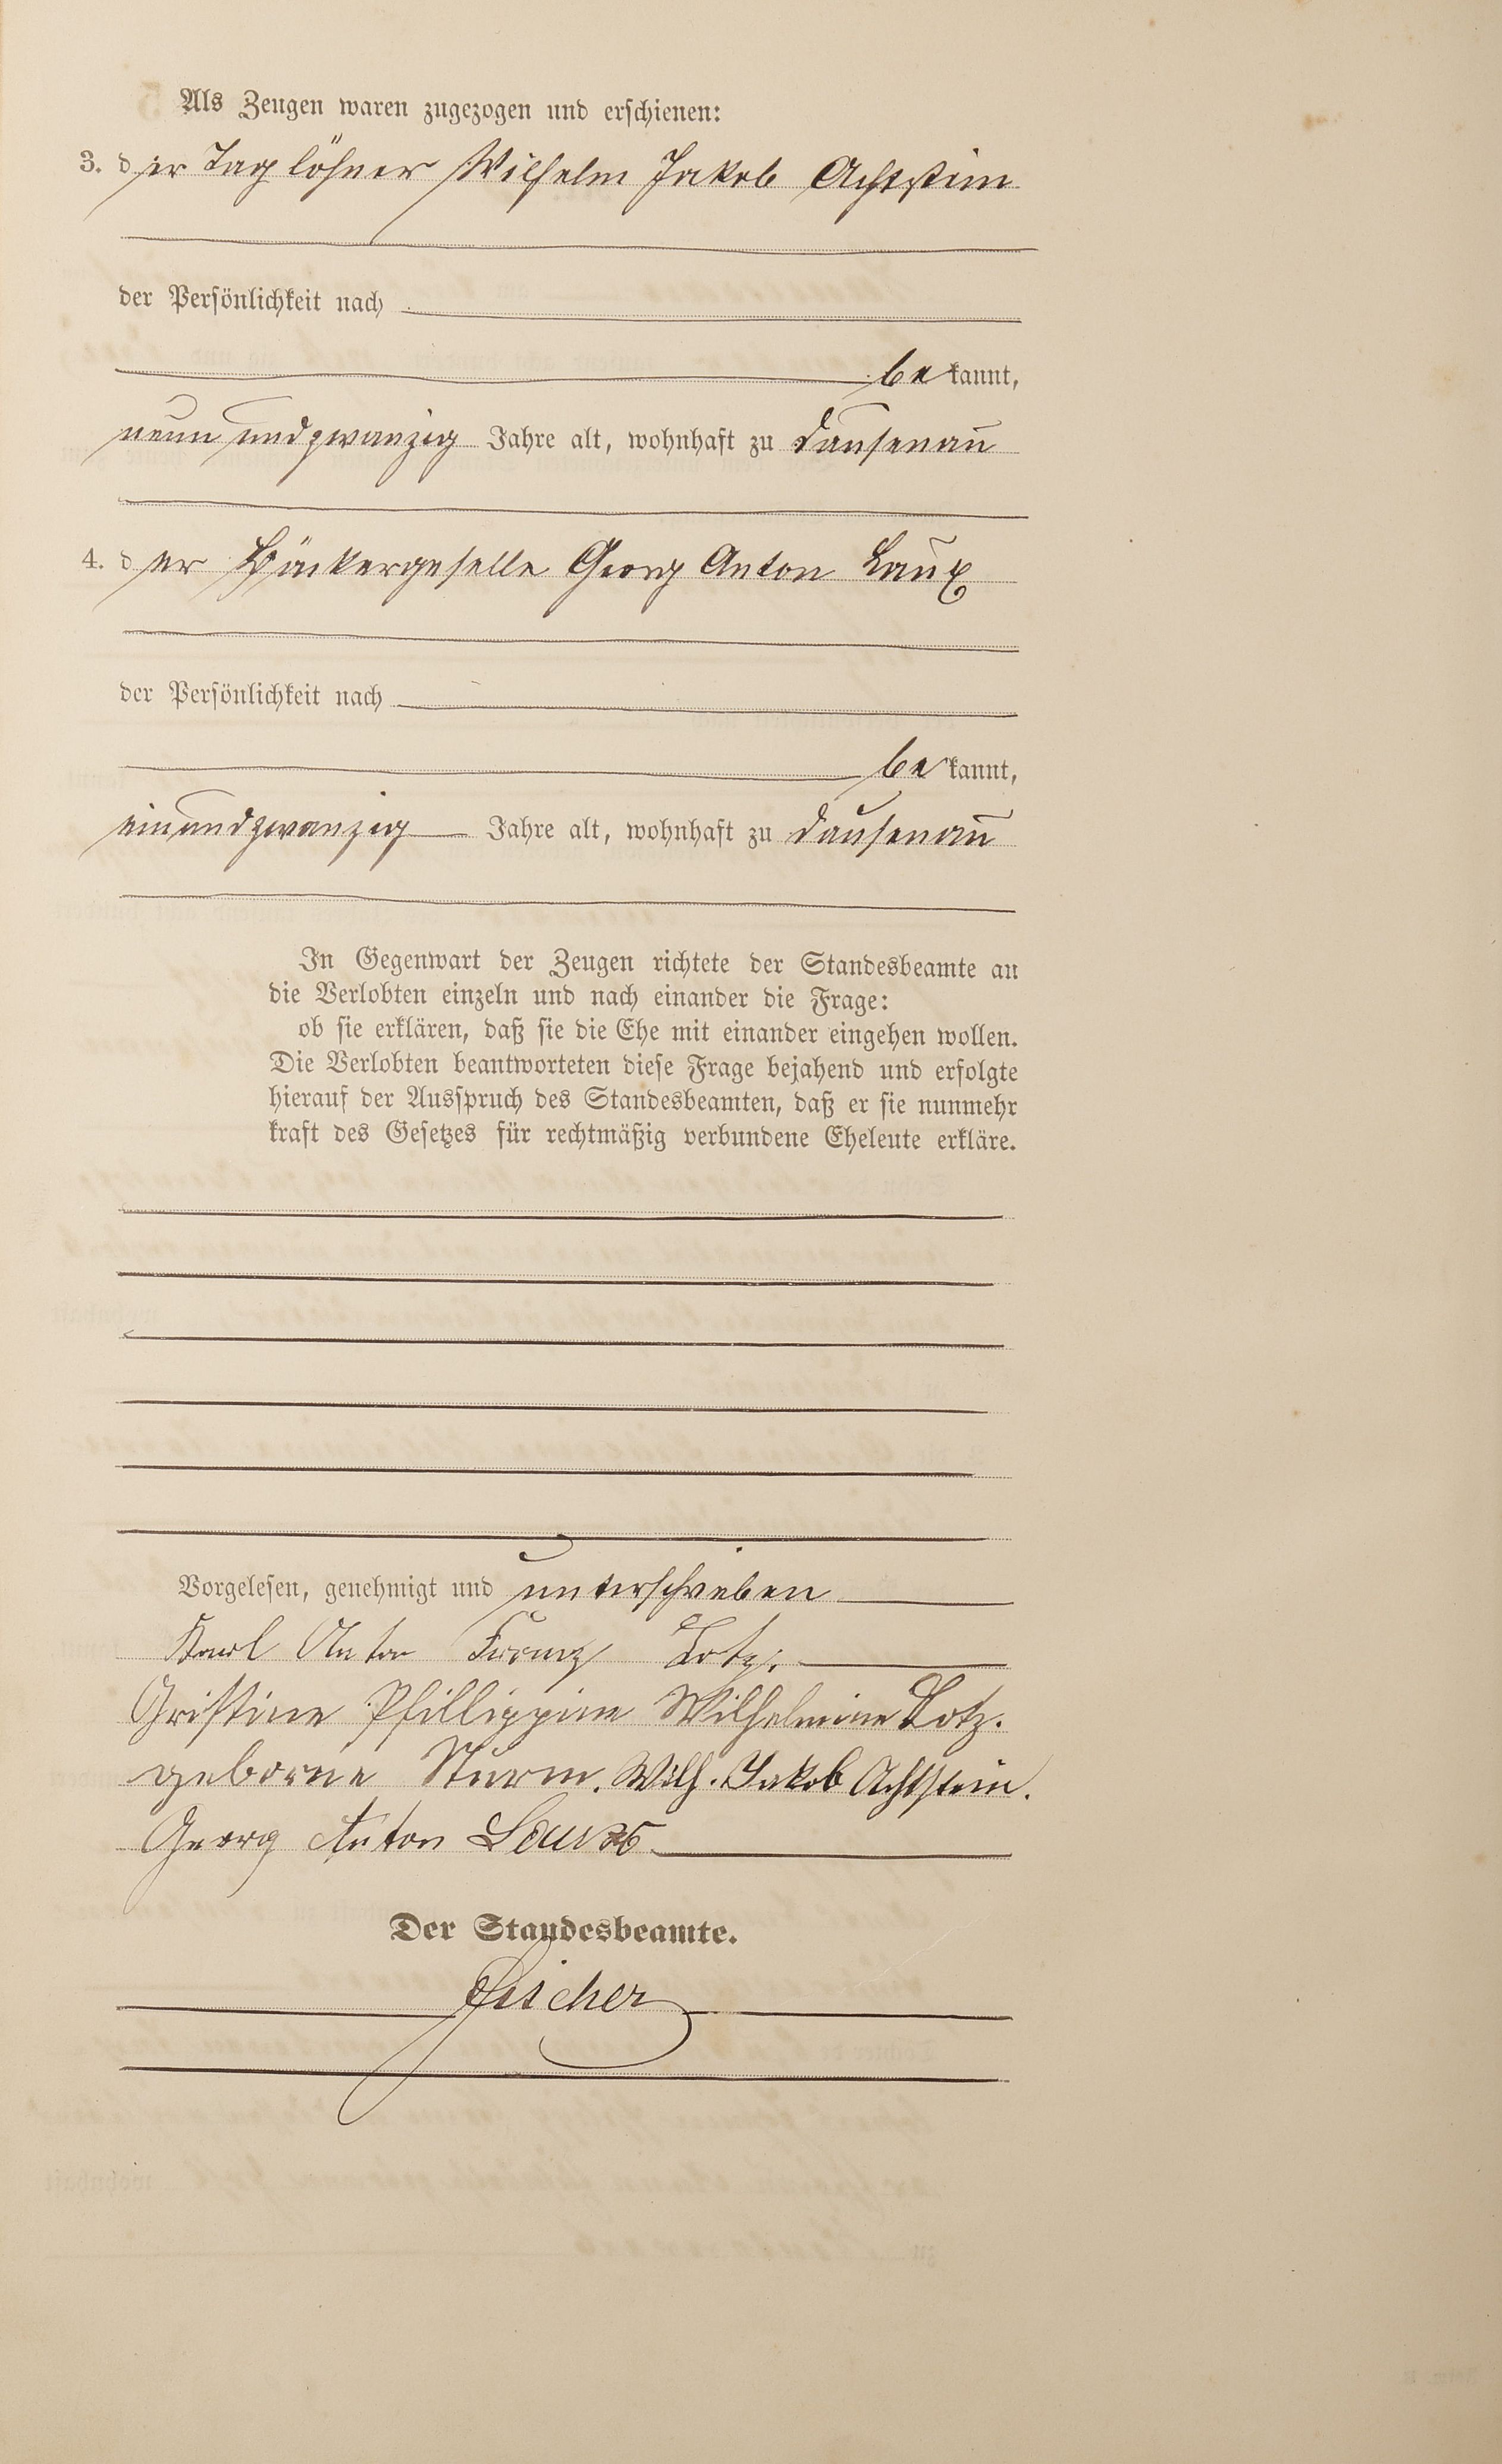 Als Zeugen waren zugezogen und erschienen:
3. der Taglöhner Wilhelm Jakob Achtstein
der Persönlichkeit nach
bekannt,
neun und zwanzig Jahre alt, wohnhaft zu Dausenau
4. der Bäckergeselle Georg Anton Laux
der Persönlichkeit nach
bekannt,
einundzwanzig Jahre alt, wohnhaft zu Dausenau
In Gegenwart der Zeugen richtete der Standesbeamte an
die Verlobten einzeln und nach einander die Frage:
ob sie erklären, daß sie die Ehe mit einander eingehen wollen.
Die Verlobten beantworteten diese Frage bejahend und erfolgte
hierauf der Ausspruch des Standesbeamten, daß er sie nunmehr
kraft des Gesetzes für rechtmäßig verbundene Eheleute erkläre.
Vorgelesen, genehmigt und unterschrieben
Karl Anton Franz Lotz.
Cristine Phillippine Wilhelmine Lotz.
geborne Sturm. Wilh. Jakob Achtstein.
Georg Anton Laux
Der Standesbeamte.
Fischer